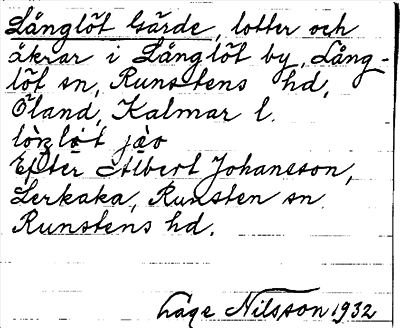 Långlöt Gärde, lotter och
åkrar i Långlöt by, Lång-
löt sn, Runstens hd,
Öland, Kalmar l.
Efter Albert Johansson,
Lerkaka, Runsten sn
Runstens hd.
Låge Nilsson 1932